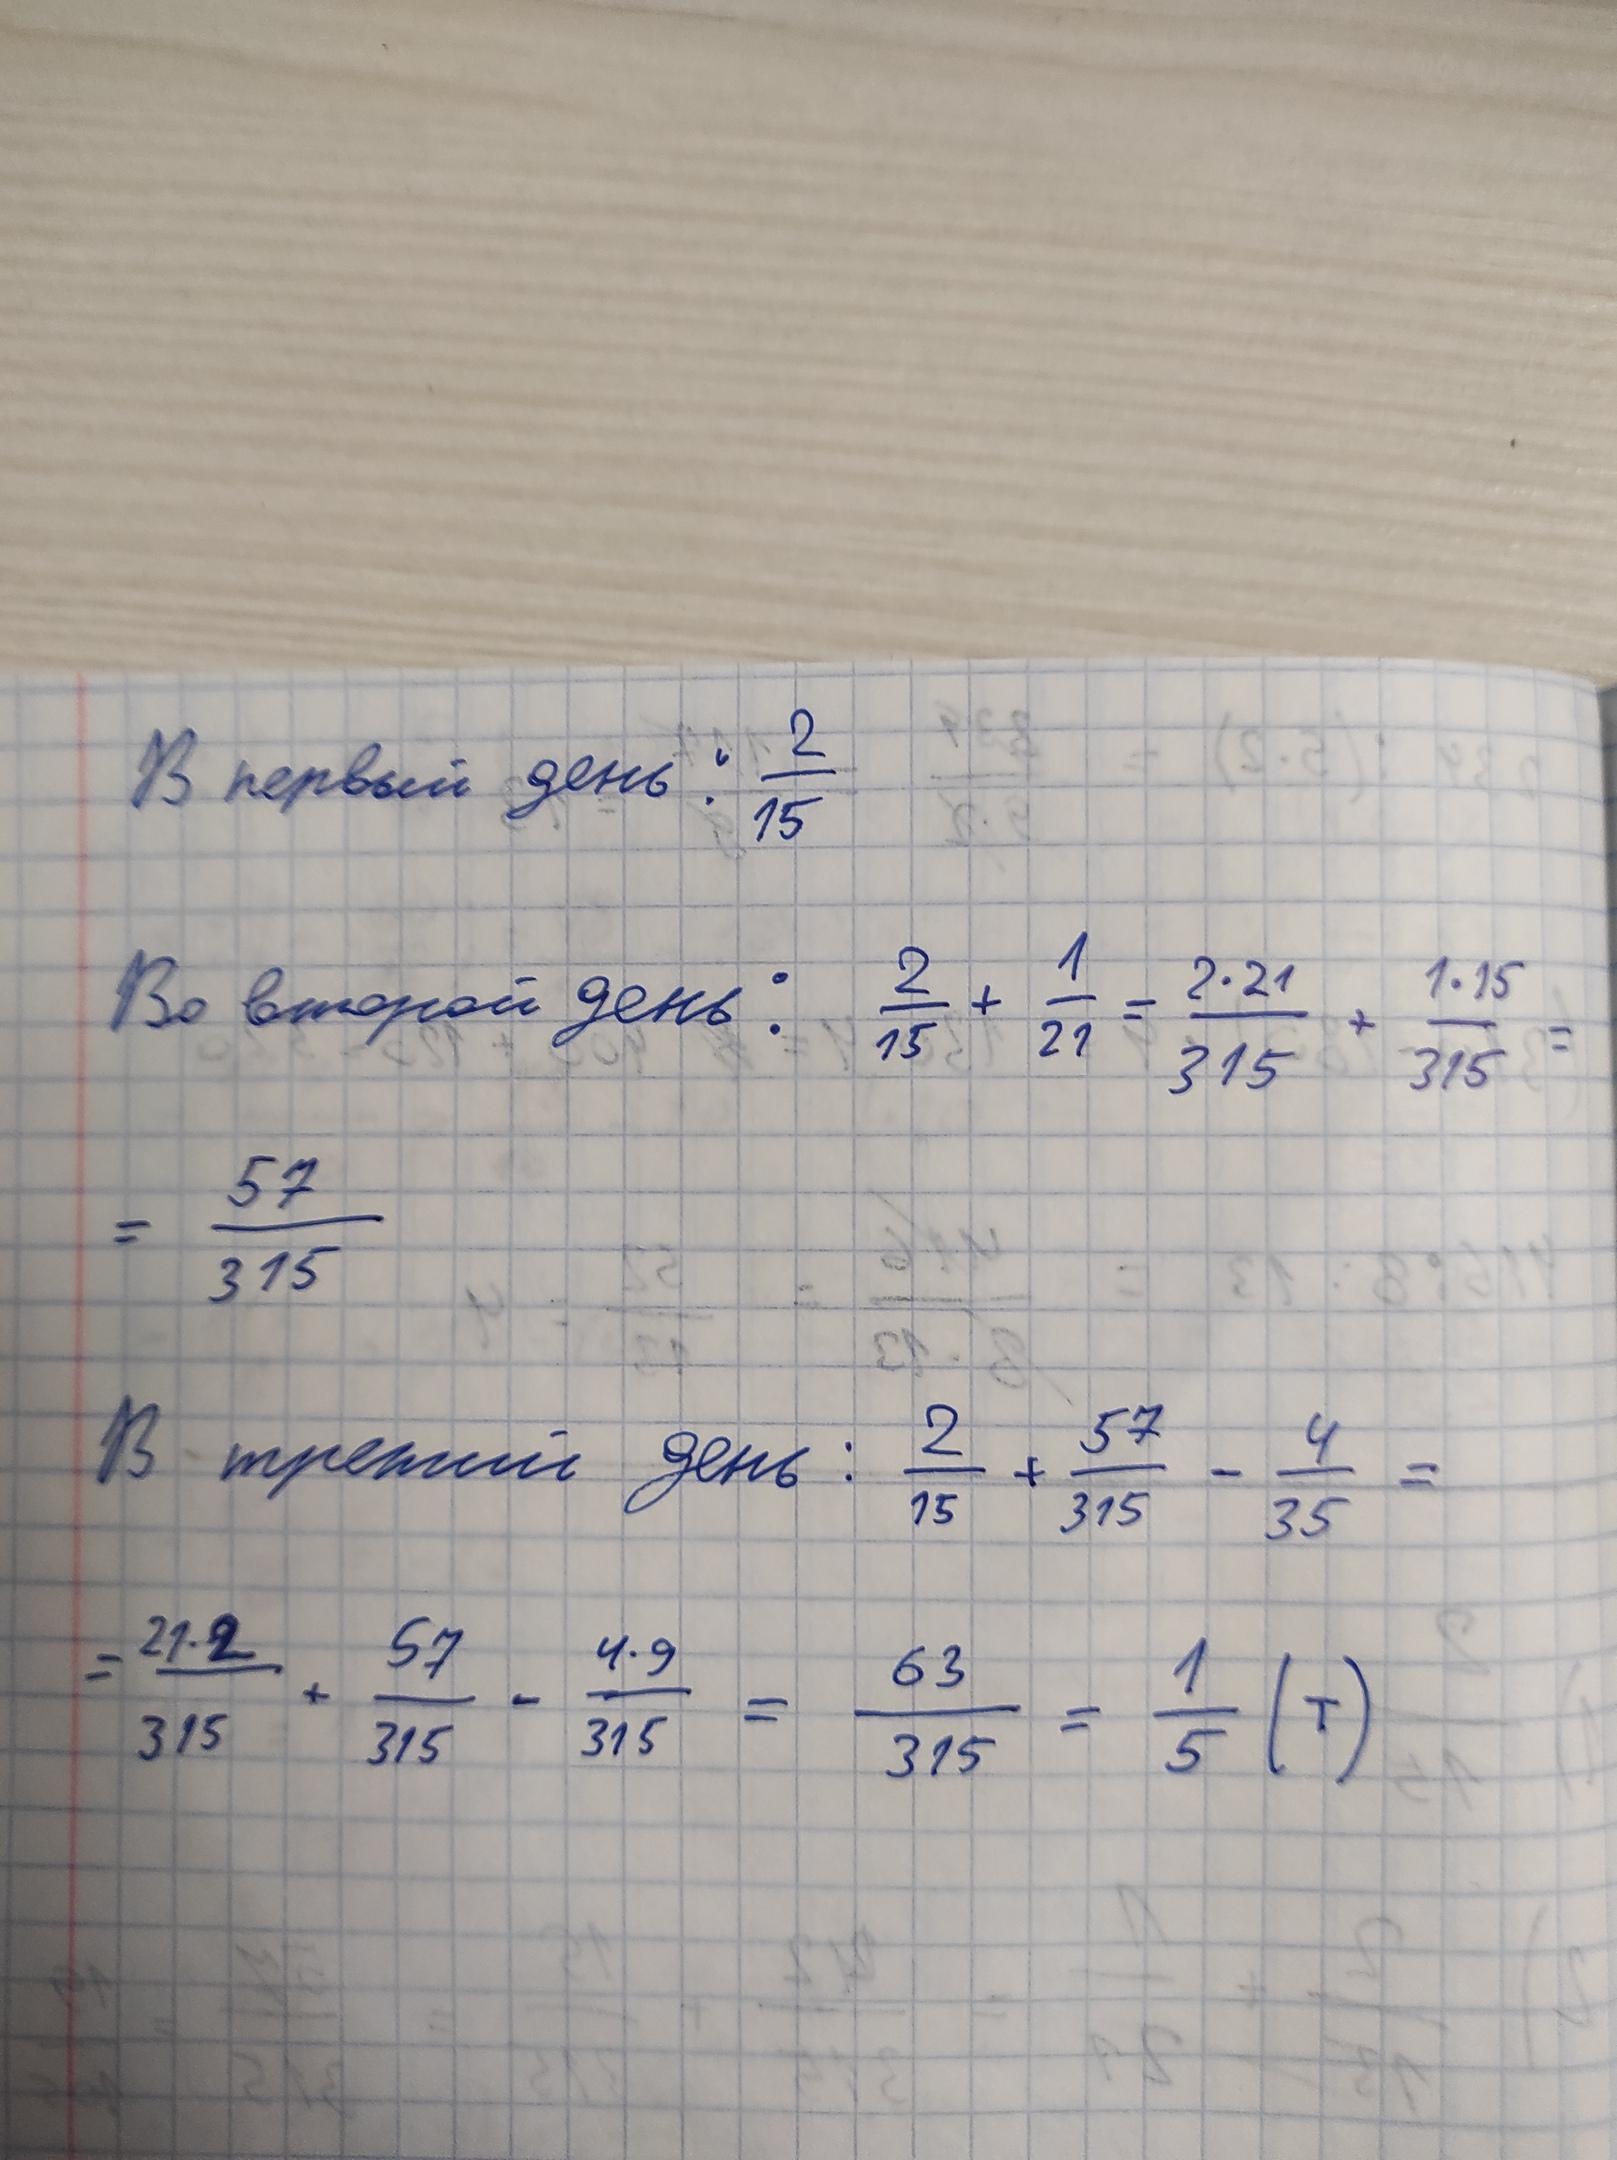 В первый день: 2/15
Во второй день: 2/15 + 1/21 = 2·21/315 + 1·15/315 =
= 57/315
В третий день: 2/15 + 57/315 - 4/35 =
= 21·2/315 + 57/315 - 4·9/315 = 63/315 = 1/5 (т)